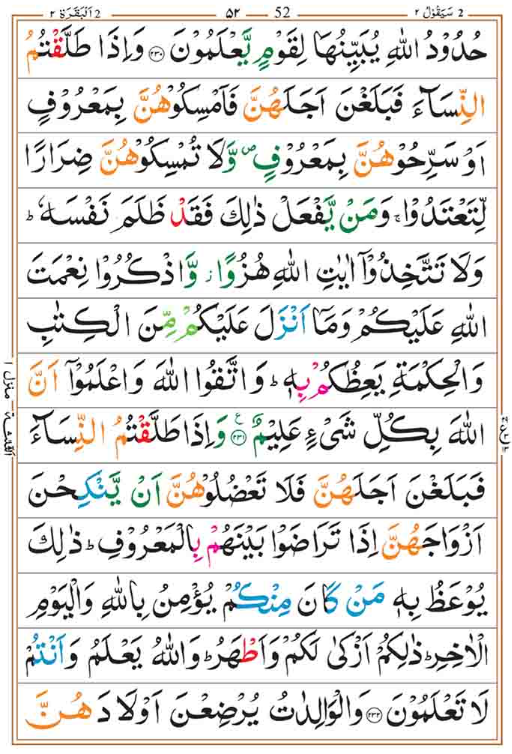 2 اَلْبَقَرَة ٢ ٥٢ — 52 2 سَيَقُوْلُ ٢
حُدُوْدُ اللّٰهِ يُبَيِّنُهَا لِقَوْمٍ يَّعْلَمُوْنَ ﴿٢٣٠﴾ وَاِذَا طَلَّقْتُمُ
النِّسَآءَ فَبَلَغْنَ اَجَلَهُنَّ فَاَمْسِكُوْهُنَّ بِمَعْرُوْفٍ
اَوْ سَرِّحُوْهُنَّ بِمَعْرُوْفٍ ۪ وَّلَا تُمْسِكُوْهُنَّ ضِرَارًا
لِّتَعْتَدُوْا ۚ وَمَنْ يَّفْعَلْ ذٰلِكَ فَقَدْ ظَلَمَ نَفْسَهٗ ؕ
وَلَا تَتَّخِذُوْۤا اٰيٰتِ اللّٰهِ هُزُوًا ؗ وَّاذْكُرُوْا نِعْمَتَ
اللّٰهِ عَلَيْكُمْ وَمَاۤ اَنْزَلَ عَلَيْكُمْ مِّنَ الْكِتٰبِ
وَالْحِكْمَةِ يَعِظُكُمْ بِهٖ ؕ وَاتَّقُوا اللّٰهَ وَاعْلَمُوْۤا اَنَّ
اللّٰهَ بِكُلِّ شَىْءٍ عَلِيْمٌ ﴿٢٣١﴾ وَاِذَا طَلَّقْتُمُ النِّسَآءَ
فَبَلَغْنَ اَجَلَهُنَّ فَلَا تَعْضُلُوْهُنَّ اَنْ يَّنْكِحْنَ
اَزْوَاجَهُنَّ اِذَا تَرَاضَوْا بَيْنَهُمْ بِالْمَعْرُوْفِ ؕ ذٰلِكَ
يُوْعَظُ بِهٖ مَنْ كَانَ مِنْكُمْ يُؤْمِنُ بِاللّٰهِ وَالْيَوْمِ
الْاٰخِرِ ؕ ذٰلِكُمْ اَزْكٰى لَكُمْ وَاَطْهَرُ ؕ وَاللّٰهُ يَعْلَمُ وَاَنْتُمْ
لَا تَعْلَمُوْنَ ﴿٢٣٢﴾ وَالْوَالِدٰتُ يُرْضِعْنَ اَوْلَادَهُنَّ
منزل ١